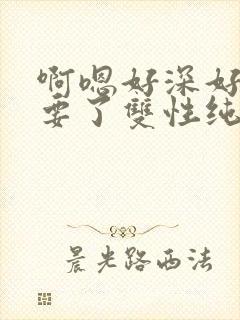 啊嗯好深好
要了雙性纯
晨光路西法